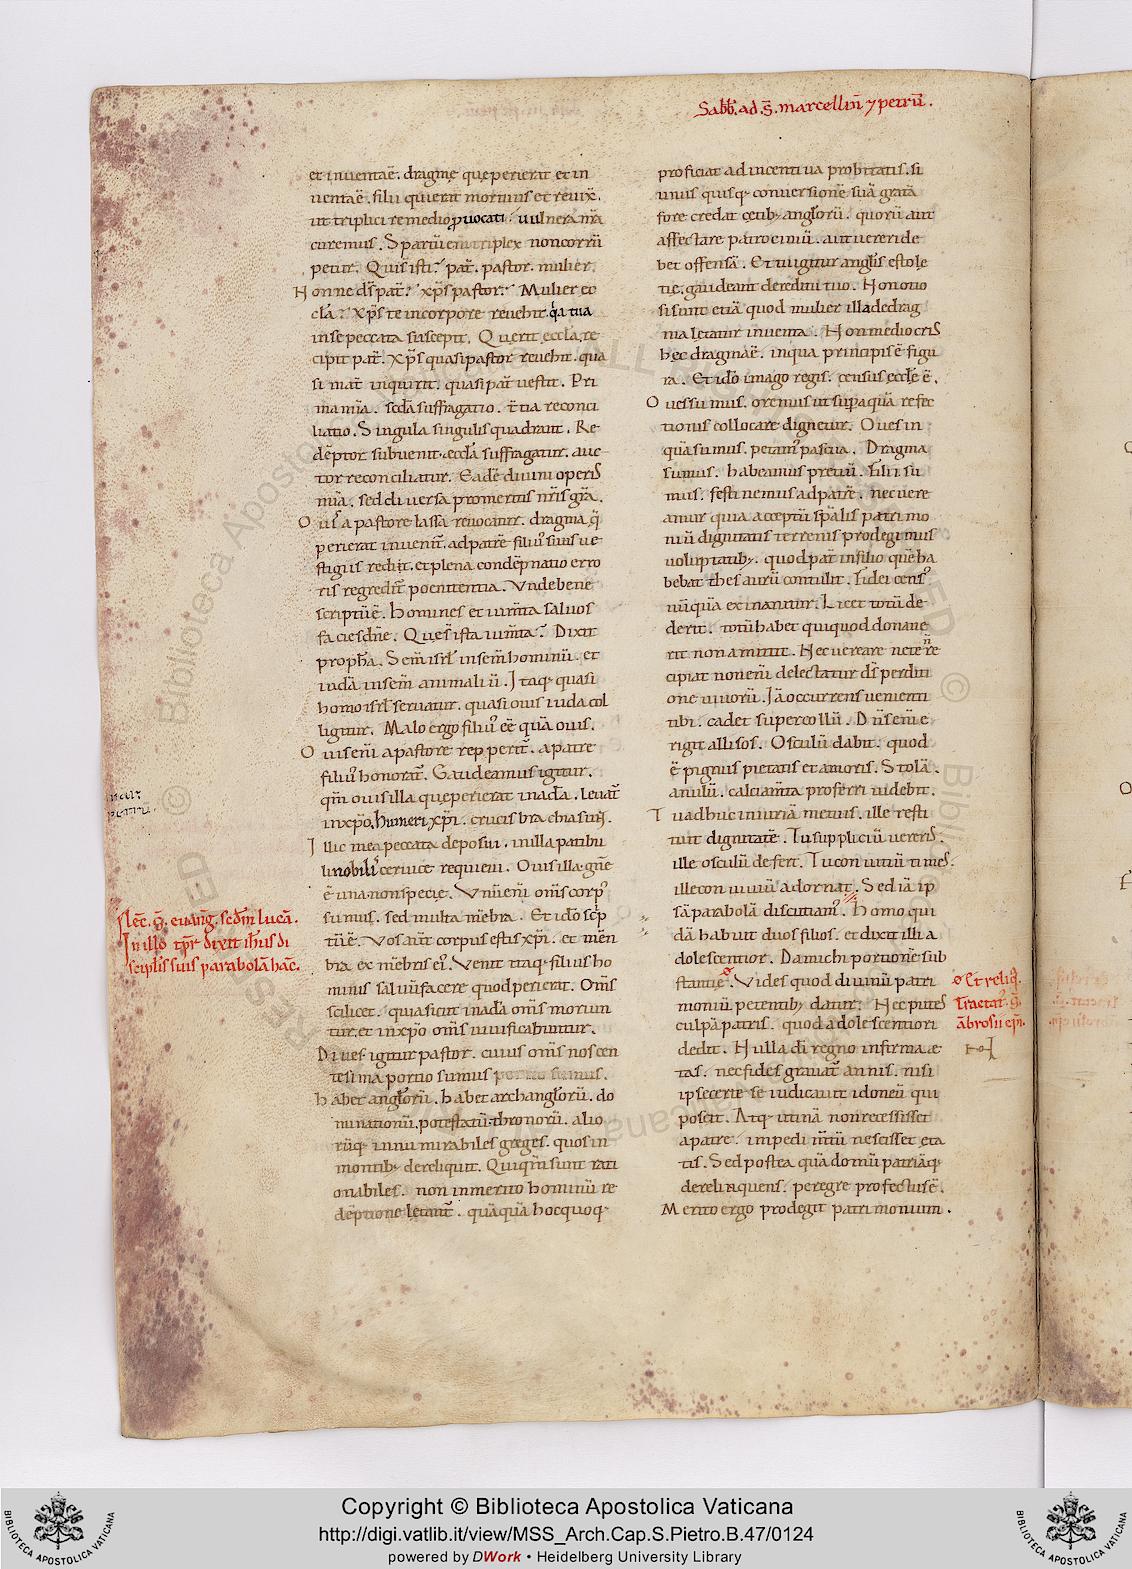 Sabb. ad. S̄. marcellin̄ ⁊ petrū.
et inuentaē. dragmę quę perierat̄ et in
uentaē. filii qui erat̄ mortuus et reuix̄.
ut triplici remedio ꝓuocati. uulnera nr̄a
curemus. Spartū enī triplex non corrū
petur. Qui s̄ isti? pat̄. pastor. mulier.
Nonne ds̄ pat̄? xp̄s pastor? Mulier ec
cl̄a? Xp̄s te in corpore reuehit. q̄a tua
in se peccata suscepit. Querit eccl̄a, re
cipit pat̄. Xp̄s quasi pastor reuehit. qua
si mat̄ inquirit. quasi pat̄ uestit. Pri
ma mīa. sed̄a suffragatio. t̄tia reconci
liatio. Singula singulis quadrant. Re
dēptor subuenit. eccl̄a suffragatur. auc
tor reconciliatur. Eadē diuini operis
mīa. sed diuersa pro meritis nr̄is gr̄a.
Ouis a pastore lassa reuocatur. dragma q̄
perierat inuenit̄. ad patrē filius suis ue
stigiis redit. et plena condēpnatio erro
ris regredit̄ poenitentia. Vnde bene
scriptū ē. Homines et iumta saluos
facies dn̄e. Que s̄ ista iumta? Dixit
proph̄a. Sem̄ isrl̄ in sem̄ hominū. et
iuda in sem̄ animaliū. Itaq; quasi
homo isrl̄ seruatur. quasi ouis iuda col
ligitur. Malo ergo filius eē quā ouis.
Ouis enī a pastore repperit̄. a patre
filius honorat̄. Gaudeamus igitur.
qm̄ ouis illa quę perierat in adā. leuat̄
in xp̄o. humeri xp̄i. crucis brachia sunt.
Illic mea peccata deposui. in illa patibu
li nobilis ceruice requieui. Ouis illa gn̄e
ē una non specie. Vnū enī om̄s corp̄
sumus. sed multa mēbra. Et ido scp̄
tū ē. Vos aut̄ corpus estis xp̄i. et mēn
bra ex mēbris ei̓. Venit itaq; filius ho
minis saluū facere quod perierat. Om̄s
scilicet. quia sicut in adā om̄s moriun
tur. et in xp̄o om̄s uiuificabuntur.
Diues igitur pastor. cuius om̄s nos cen
tesima portio sumus
Habet angl̓orū. habet archangl̓orū. do
minationū. potestatū. thronorū. alio
rūq; innumirabiles greges. quos in
montib; dereliquit. Qui qm̄ sunt rati
onabiles. non inmerito hominū re
dēptione letant̄. quāquā hoc quoq;
proficiat ad incentiua probitatis. si
unus quisq; conuersionē suā gratā
fore credat cętib; angl̓orū. quorū aut
affectare patrociniū. aut uereri de
bet offensā. Et tu igitur angl̓is esto lę
tię. gaudeant de reditu tuo. Non otio
si sunt etiā quod mulier illa de drag
ma letatur inuenta. Non mediocris
hęc dragma ē. in qua principis ē figu
ra. Et ido imago regis. census eccl̄ę ē.
Oues sumus. oremus ut sup aquā refec
tionis collocare dignetur. Oues in
quā sumus. petam̓ pascua. Dragma
sumus. habeamus pretiū. Filii su
mus. festinemus ad patrē. nec uere
amur quia acceptū spālis patrimo
niū dignitatis terrenis prodegimus
uoluptatib;. quod pat̄ in filio quē ha
bebat thesaurū contulit. Fidei cens̓
nūquā exinanitur. Licet totū de
derit. totū habet qui quod donaue
rit non amittit. Nec uereare ne te n̄ re
cipiat non enī delectatur ds̄ perditi
one uiuorū. Iā occurrens uenienti
tibi. cadet super collū. Dn̄s enī e
rigit allisos. Osculū dabit. quod
ē pignus pietatis et amoris. Stolā.
anulū. calciamta proferri iudebit.
Tu adhuc iniuriā metuis. ille resti
tuit dignitatē. Tu suppliciū uereris.
ille osculū defert. Tu conuitiū times.
ille conuiuiū adornat. Sed iā ip
sā parabolā discutiam̓. Homo qui
dā habuit duos filios. et dixit illi a
dolescentior. Da michi portionē sub
stantię. Vides quod diuinū patri
moniū petentib; datur. Nec putes
culpā patris. quod adolescentiori
dedit. Nulla di regno infirma æ
tas. nec fides grauat̄ annis. nisi
ipse certe se iudicauit idoneū qui
poscit. Atq; utinā non recessisset
a patre. impedimtū nescisset ęta
tis. Sed postea quā domū patriāq;
derelinquens. peregre profectus ē.
Merito ergo prodegit patrimonium.
lec̄. s̄. euang̅. scd̄m lucā.
In illo tp̄r dixit ih̄us di
scipl̓is suis parabolā hāc.
Et reliq̄.
Tractat̓. s̄.
ābrosii ep̄i.
Copyright © Biblioteca Apostolica Vaticana
http://digi.vatlib.it/view/MSS_Arch.Cap.S.Pietro.B.47/0124
powered by DWork • Heidelberg University Library
BIBLIOTECA APOSTOLICA VATICANA
BIBLIOTECA APOSTOLICA VATICANA